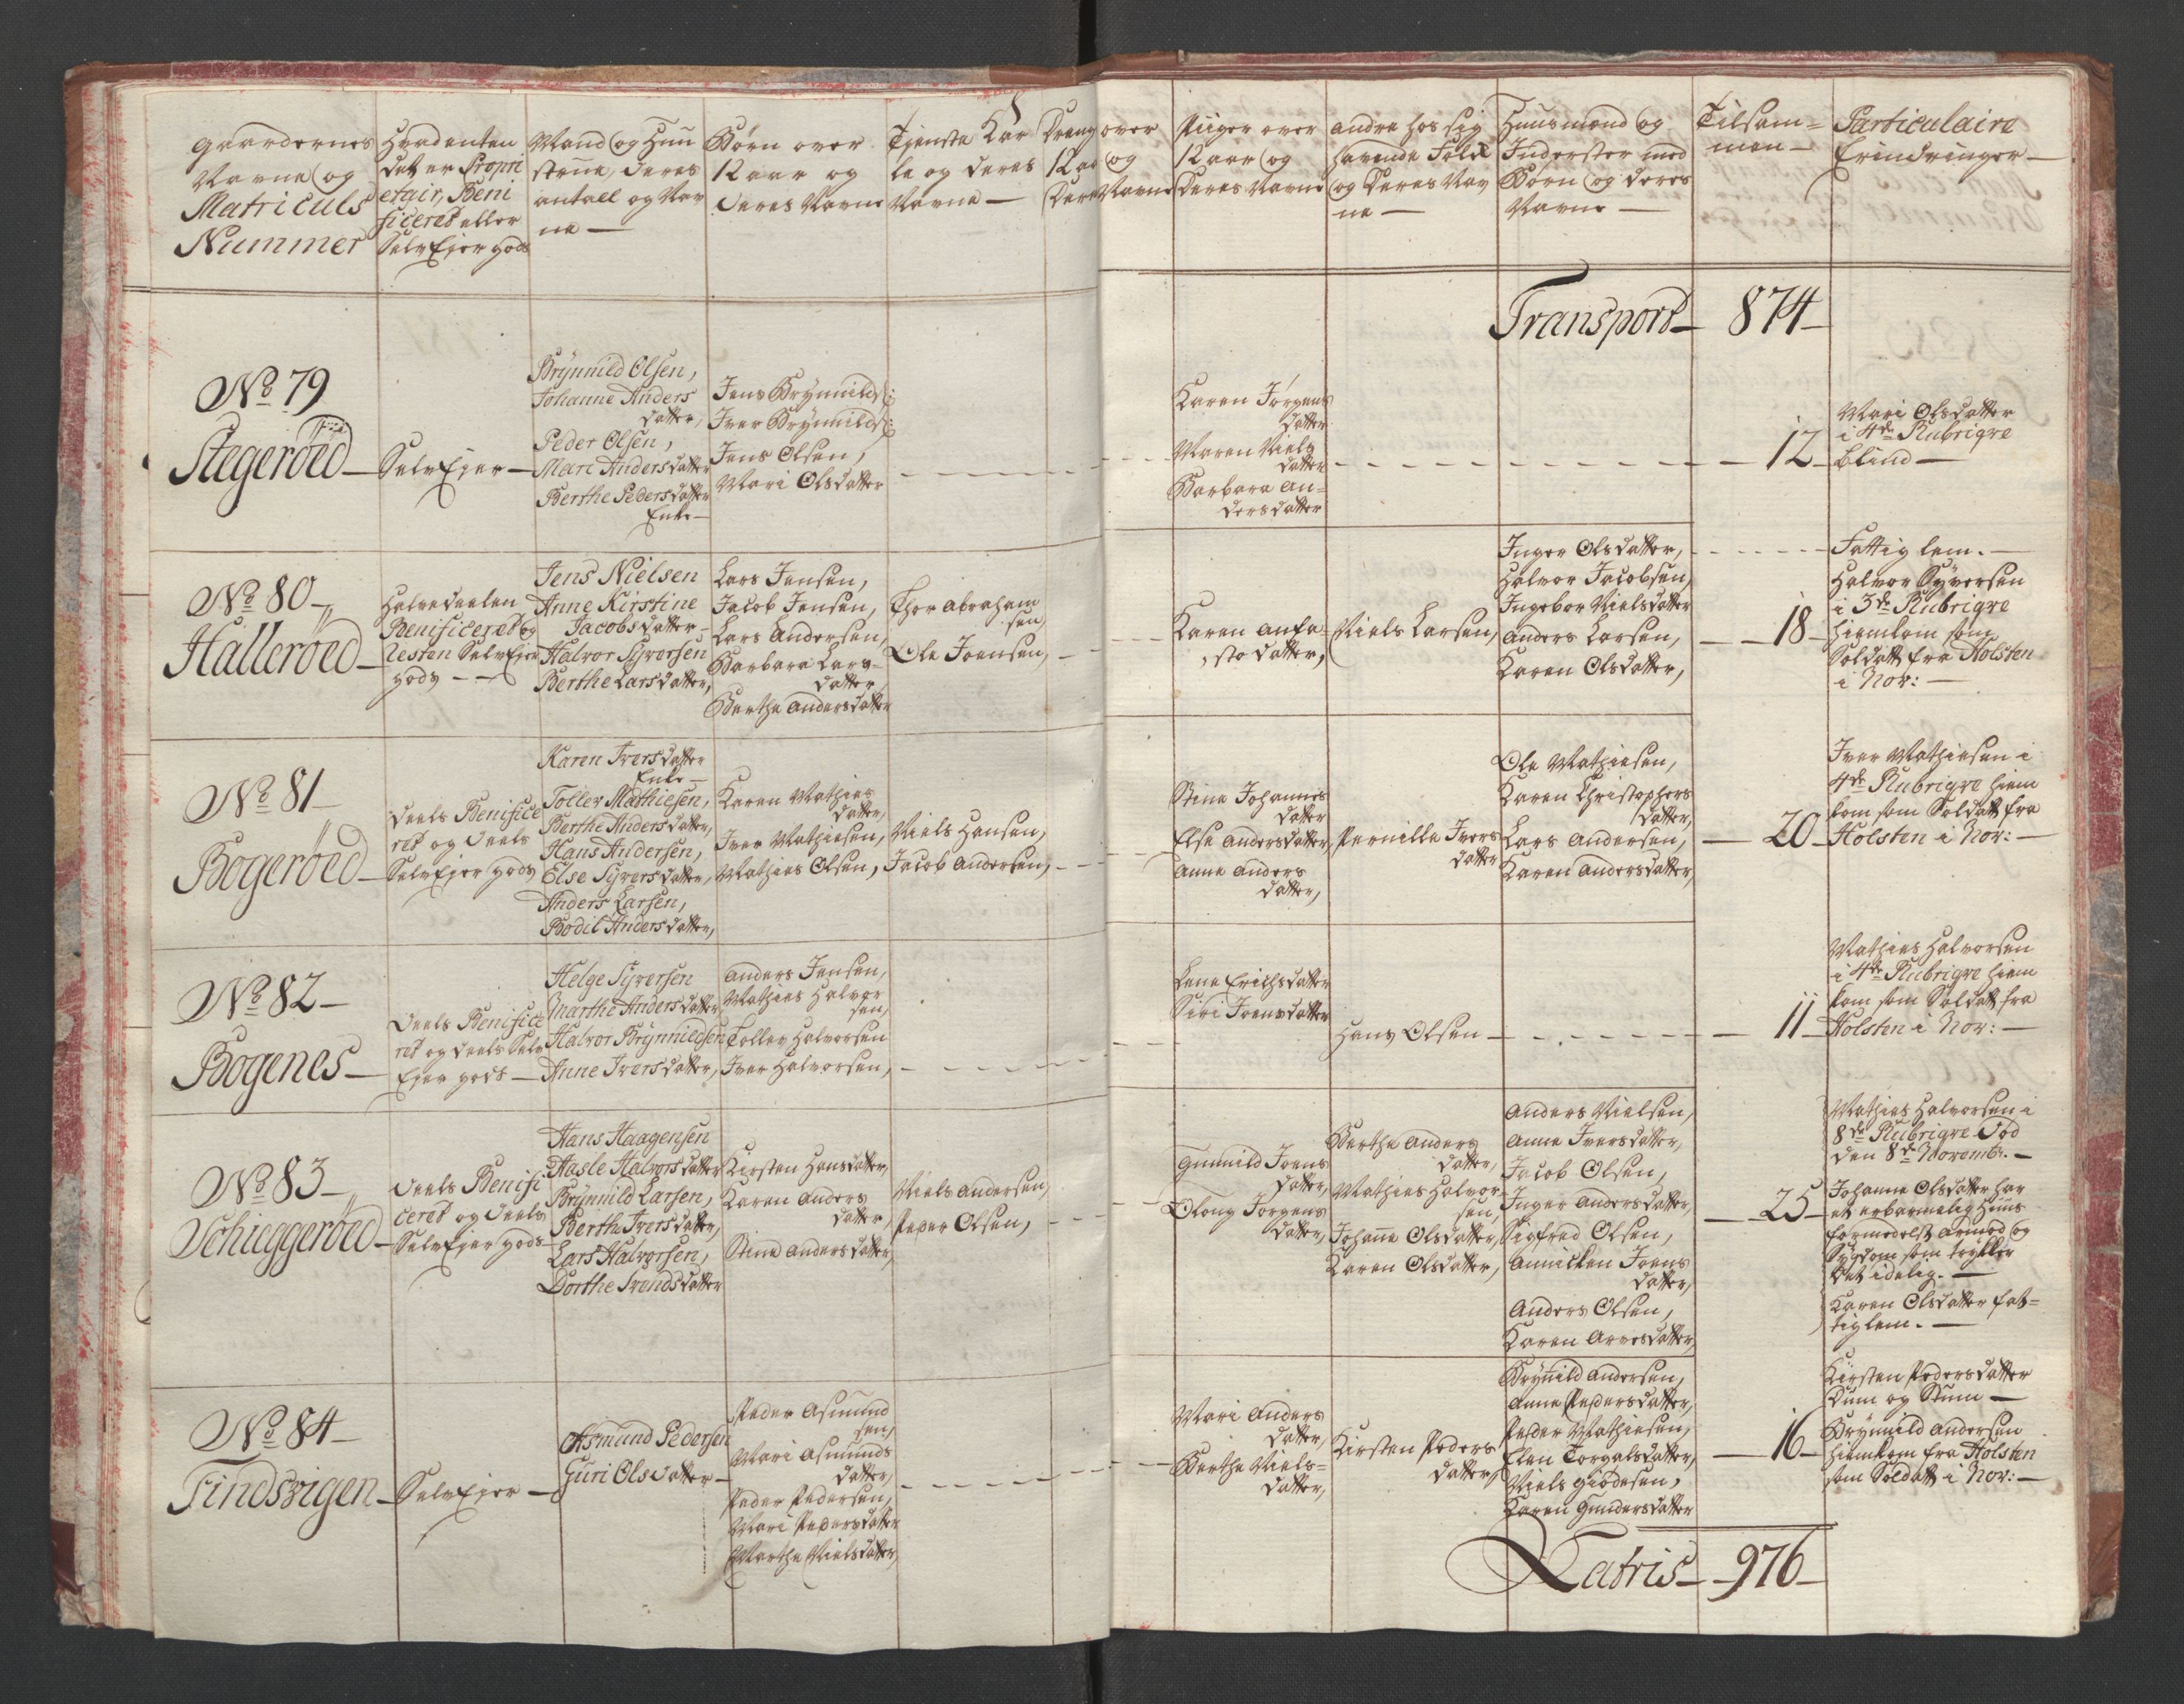 Gaardernes
Navne og
Matriculs
Nummer
Hvadenten
det er Propri
etair, Beni
ficeret eller
SelvEjer gods
Mand og Huu
strue, deres
antall og Nav
ne —
Børn over
12 aar og
deres Navne
Tjeneste Kar
le og deres
Navne —
Dreng over
12 aar og
Deres Navne
Piiger over
12 aar og
Deres Navne
andre hos sig
havende Folck
og Deres Nav
ne —
Huusmænd og
Inderster med
Børn og deres
Navne —
Tilsam=
men —
Particulaire
Erindringer —
Transport — 874 —
No 79
Stegerøed —
SelvEjer —
Brynnild Olsen,
Johanne Anders
datter,
Peder Olsen,
Mari Andersdatter
Berthe Pedersdatter
Enke —
Jens Brynnilds:
Iver Brynnilds:
Jens Olsen,
Mari Olsdatter
Karen Jørgens
datter
Maren Niels
datter
Barbara An=
dersdatter
12 —
Mari Olsdatter
i 4de Rubriqve
blind —
No 80 —
Hallerøed —
Halvedeelen
Benificeret og
resten SelvEjer
gods — —
Jens Nielsen
Anne Kirstine
Jacobsdatter —
Halvor Syversen
Berthe Larsdatter,
Lars Jensen,
Jacob Jensen,
Lars Andersen,
Barbara Lars=
datter
Berthe Andersdatter
Thor Abraham
sen,
Ole Joensen,
Karen Anfa=
sto datter,
Niels Larsen,
Inger Olsdatter,
Halvor Jacobsen,
Ingebor Nielsdatter
Anders Larsen,
Karen Olsdatter,
18 —
Fattig lem. —
Halvor Syversen
i 3de Rubriqve
hiemkom som
Soldatt fra Holsten
i Nov: —
No 81 —
Bogerøed —
deels Benifice
ret og deels
SelvEjer gods
Karen Iversdatter
Enke —
Toller Mathiesen,
Berthe Andersdatter,
Hans Andersen,
Else Syversdatter,
Anders Larsen,
Bodil Andersdatter,
Karen Mathies
datter,
Iver Mathiesen,
Mathies Olsen,
Niels Hansen,
Jacob Andersen,
Stine Johannes
datter
Else Andersdatter,
Anne Anders
datter,
Pernille Ivers
datter
Ole Mathiesen,
Karen Christophers
datter,
Lars Andersen,
Karen Andersdatter,
20 —
Iver Mathiesen i
4de Rubriqve hiem
kom som Soldatt fra
Holsten i Nov: —
No 82 —
Bogenes —
deels Benifice
ret og deels Selv
Ejer gods —
Helge Syversen
Marthe Andersdatter
Halvor Brynnildsen
Anne Iversdatter,
Anders Jensen,
Mathies Halvor
sen,
Tollev Halvorsen
Iver Halvorsen,
Lene Erichsdatter
Siri Joensdatter
Hans Olsen —
11 —
Mathies Halvorsen
i 4de Rubriqve hiem
kom som Soldatt fra
Holsten i Nov: —
No 83 —
Schieggerøed —
deels Benifi
ceret og deels
SelvEjer gods —
Hans Haagensen
Aasle Halvorsdatter
Brynnild Larsen,
Berthe Iversdatter,
Lars Halvorsen,
Dorthe Svendsdatter
Kirsten Hansdatter,
Karen Anders
datter,
Stine Andersdatter,
Niels Andersen,
Peder Olsen,
Gunnild Joens
datter,
Oloug Jorgens
datter,
Berthe Anders
datter,
Mathies Halvor
sen,
Johanne Olsdatter,
Karen Olsdatter,
Anders Nielsen,
Anne Iversdatter,
Jacob Olsen,
Inger Andersdatter,
Sigfred Olsen,
Annichen Joens
datter,
Anders Olsen,
Karen Arnesdatter,
25 —
Mathies Halvorsen i
8de Rubriqve Død
den 8de Novembr. —
Johanne Olsdatter har
et erbarmelig Huus
formedelst Armod og
Sygdom som trykker
det idelig. —
Karen Olsdatter fat=
tiglem. —
No 84 —
Findsvigen —
SelvEjer —
Asmund Pedersen
Guri Olsdatter —
Peder Asmund
sen,
Mari Asmunds
datter,
Peder Pedersen,
Mari Pedersdatter
Marthe Nielsdatter,
Mari Anders
datter,
Berthe Niels=
datter,
Kirsten Peders
datter,
Brynnild Andersen,
Anne Pedersdatter,
Peder Mathiesen,
Elen Torgalsdatter,
Niels Giødesen,
Karen Gundersdatter
16 —
Kirsten Pedersdatter
Dum og Stum —
Brynnild Andersen
hiemkom fra Holsten
som Soldatt i Nov: —
Latris — 976 —